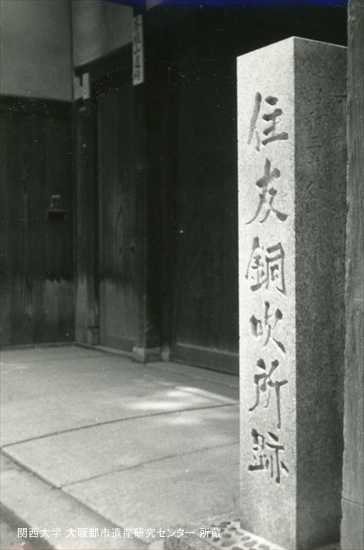 住友銅吹所跡
関西大学 大阪都市遺産研究センター 所蔵